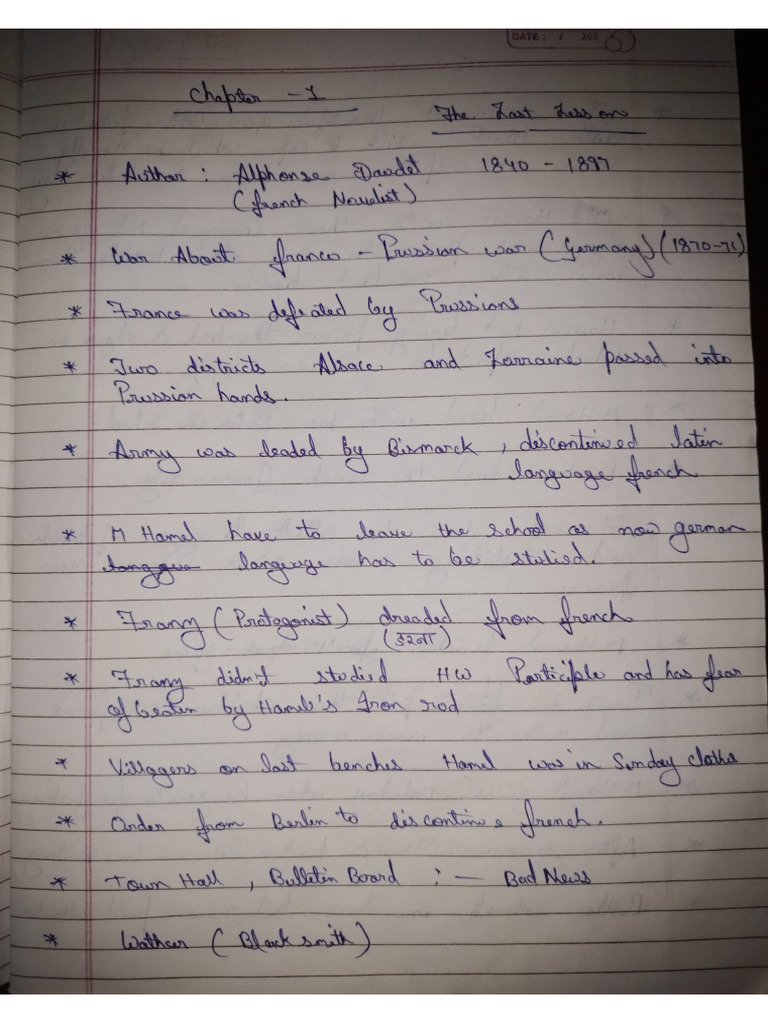 DATE: / 202
Chapter - 1
The Last Lesson
* Author : Alphonse Daudet 1840 - 1897
(french Novelist)
* War About franco - Prussian war (Germany) (1870-71)
* France was defeated by Prussions
* Two districts Alsace and Lorraine passed into
Prussian hands.
* Army was leaded by Bismarck , discontinued latin
language french
* M Hamel have to leave the school as now german
language has to be studied.
* Frany (Protagonist) dreaded from french
(डरना)
* Frany didn't studied HW Participle and has fear
of beaten by Hamel's Iron rod
* Villagers on last benches Hamel was in Sunday cloths
* Order from Berlin to discontinue french.
* Town Hall , Bulletin Board : — Bad News
* (Blacksmith)